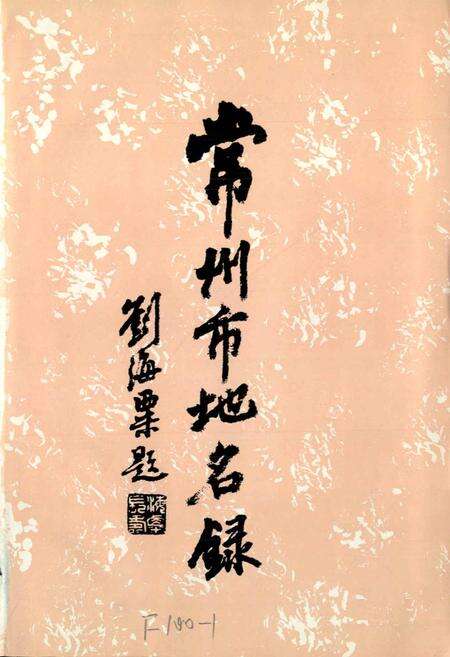 常州市地名録
劉海粟题
F.100-1